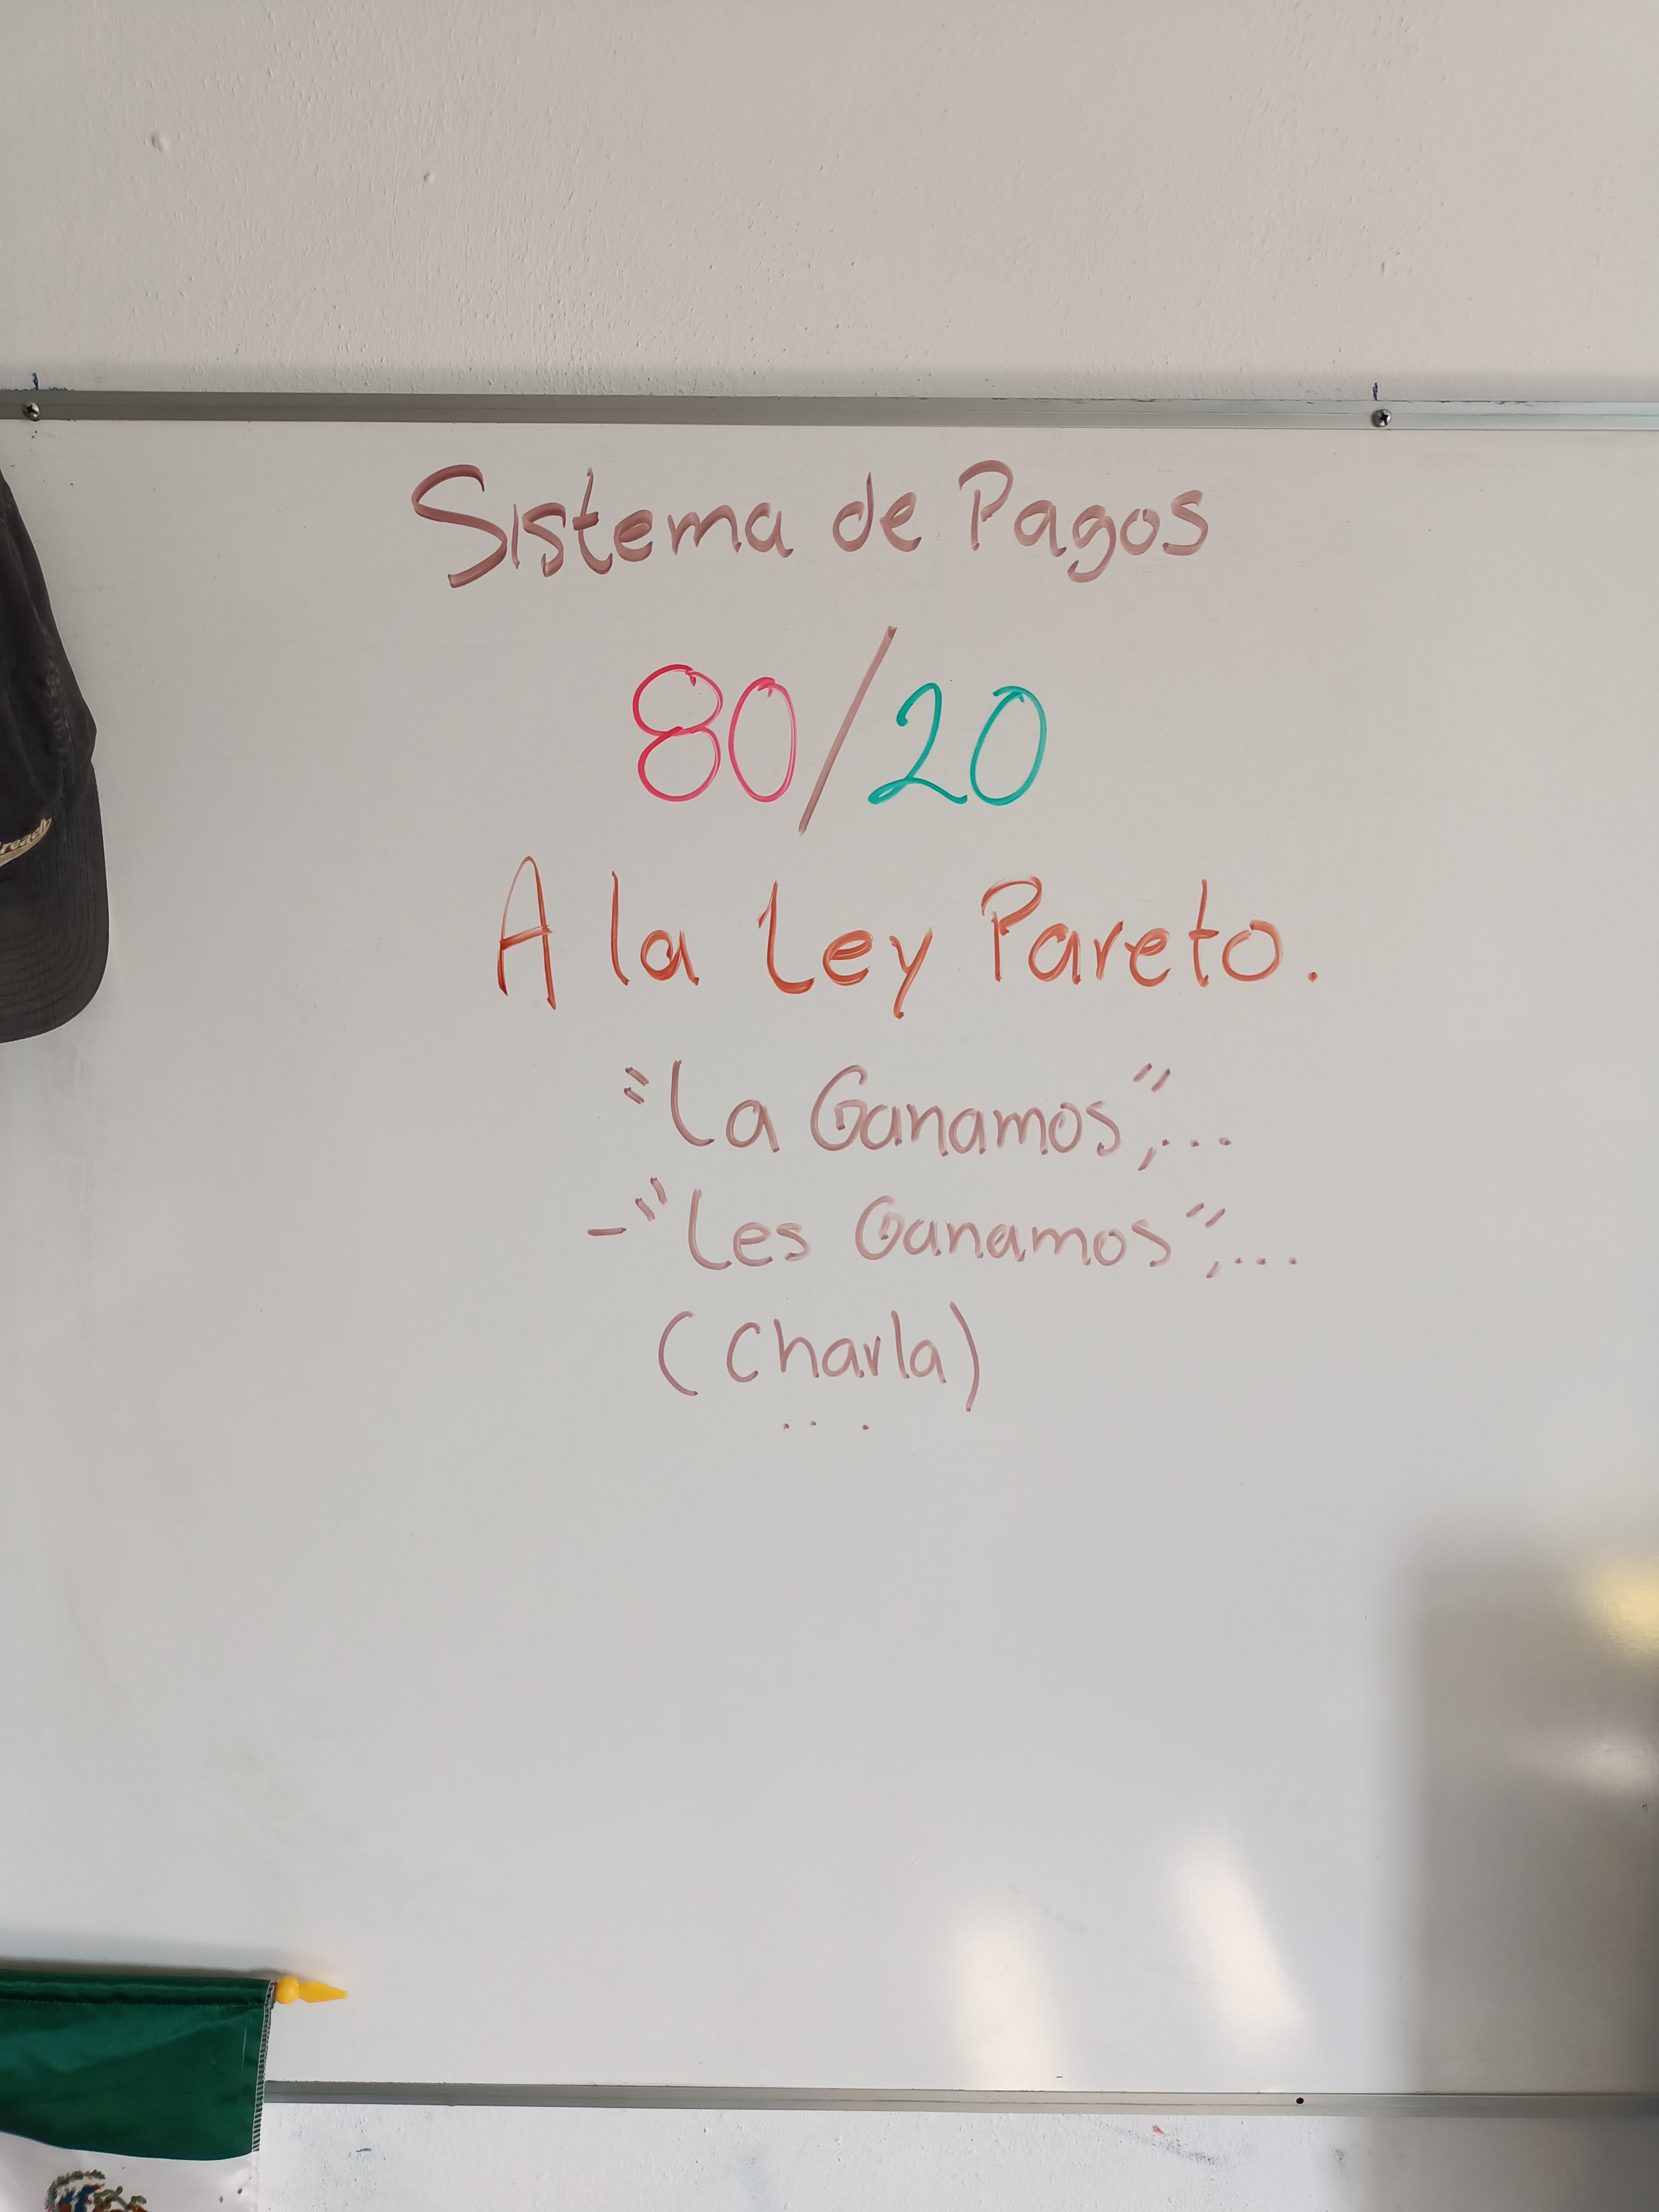 Sistema de Pagos
80/20
A la Ley Pareto.
"La Ganamos",...
-"Les Ganamos",...
(Charla)
...